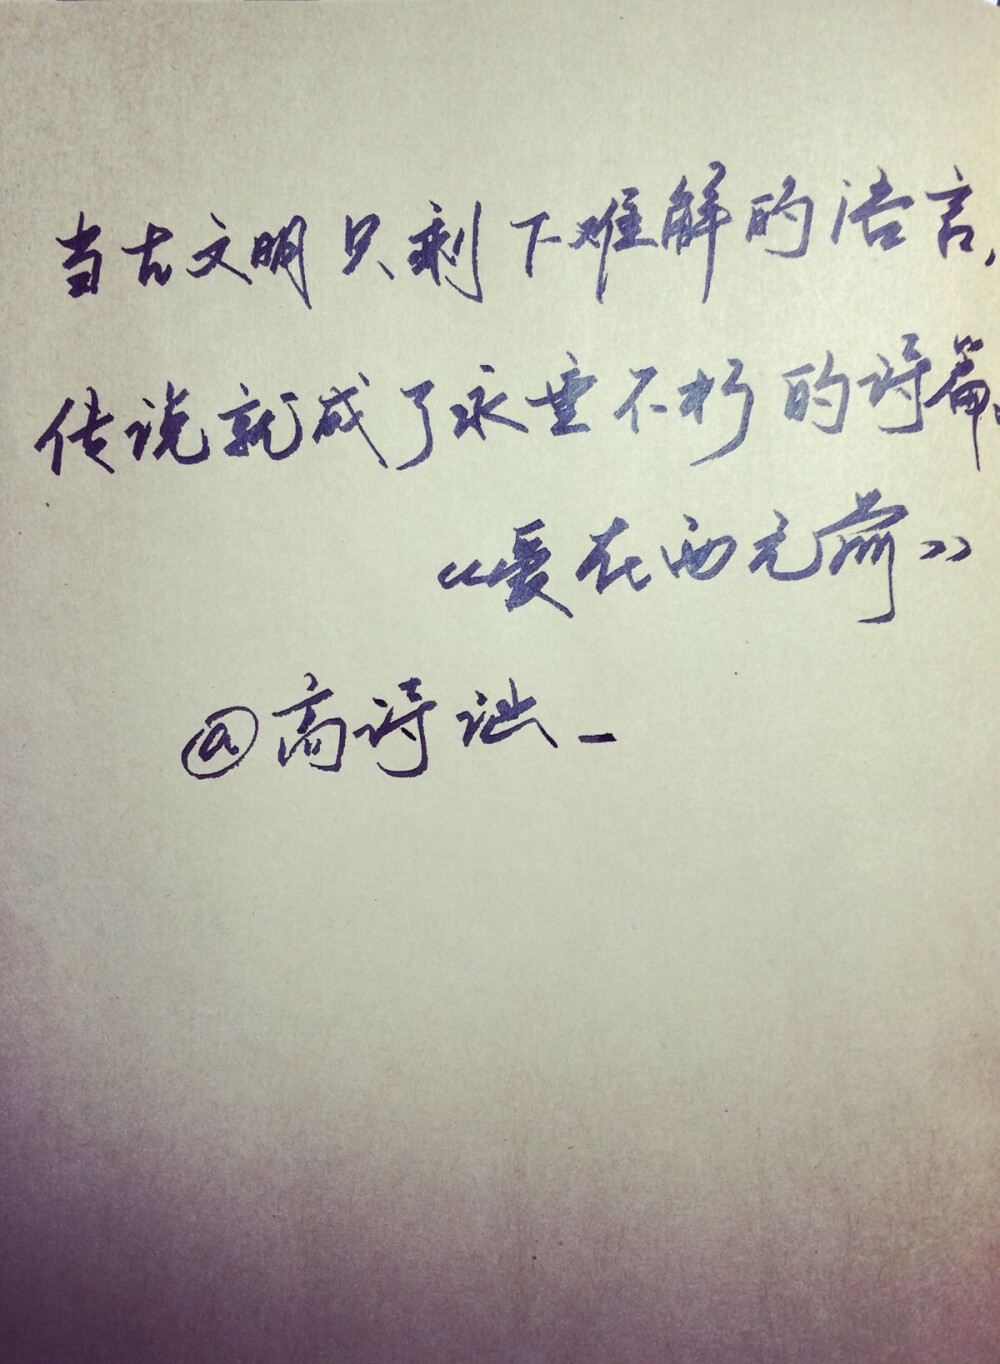 当古文明只剩下难解的语言,
传说就成了永垂不朽的诗篇。
《爱在西元前》
@高诗讪_